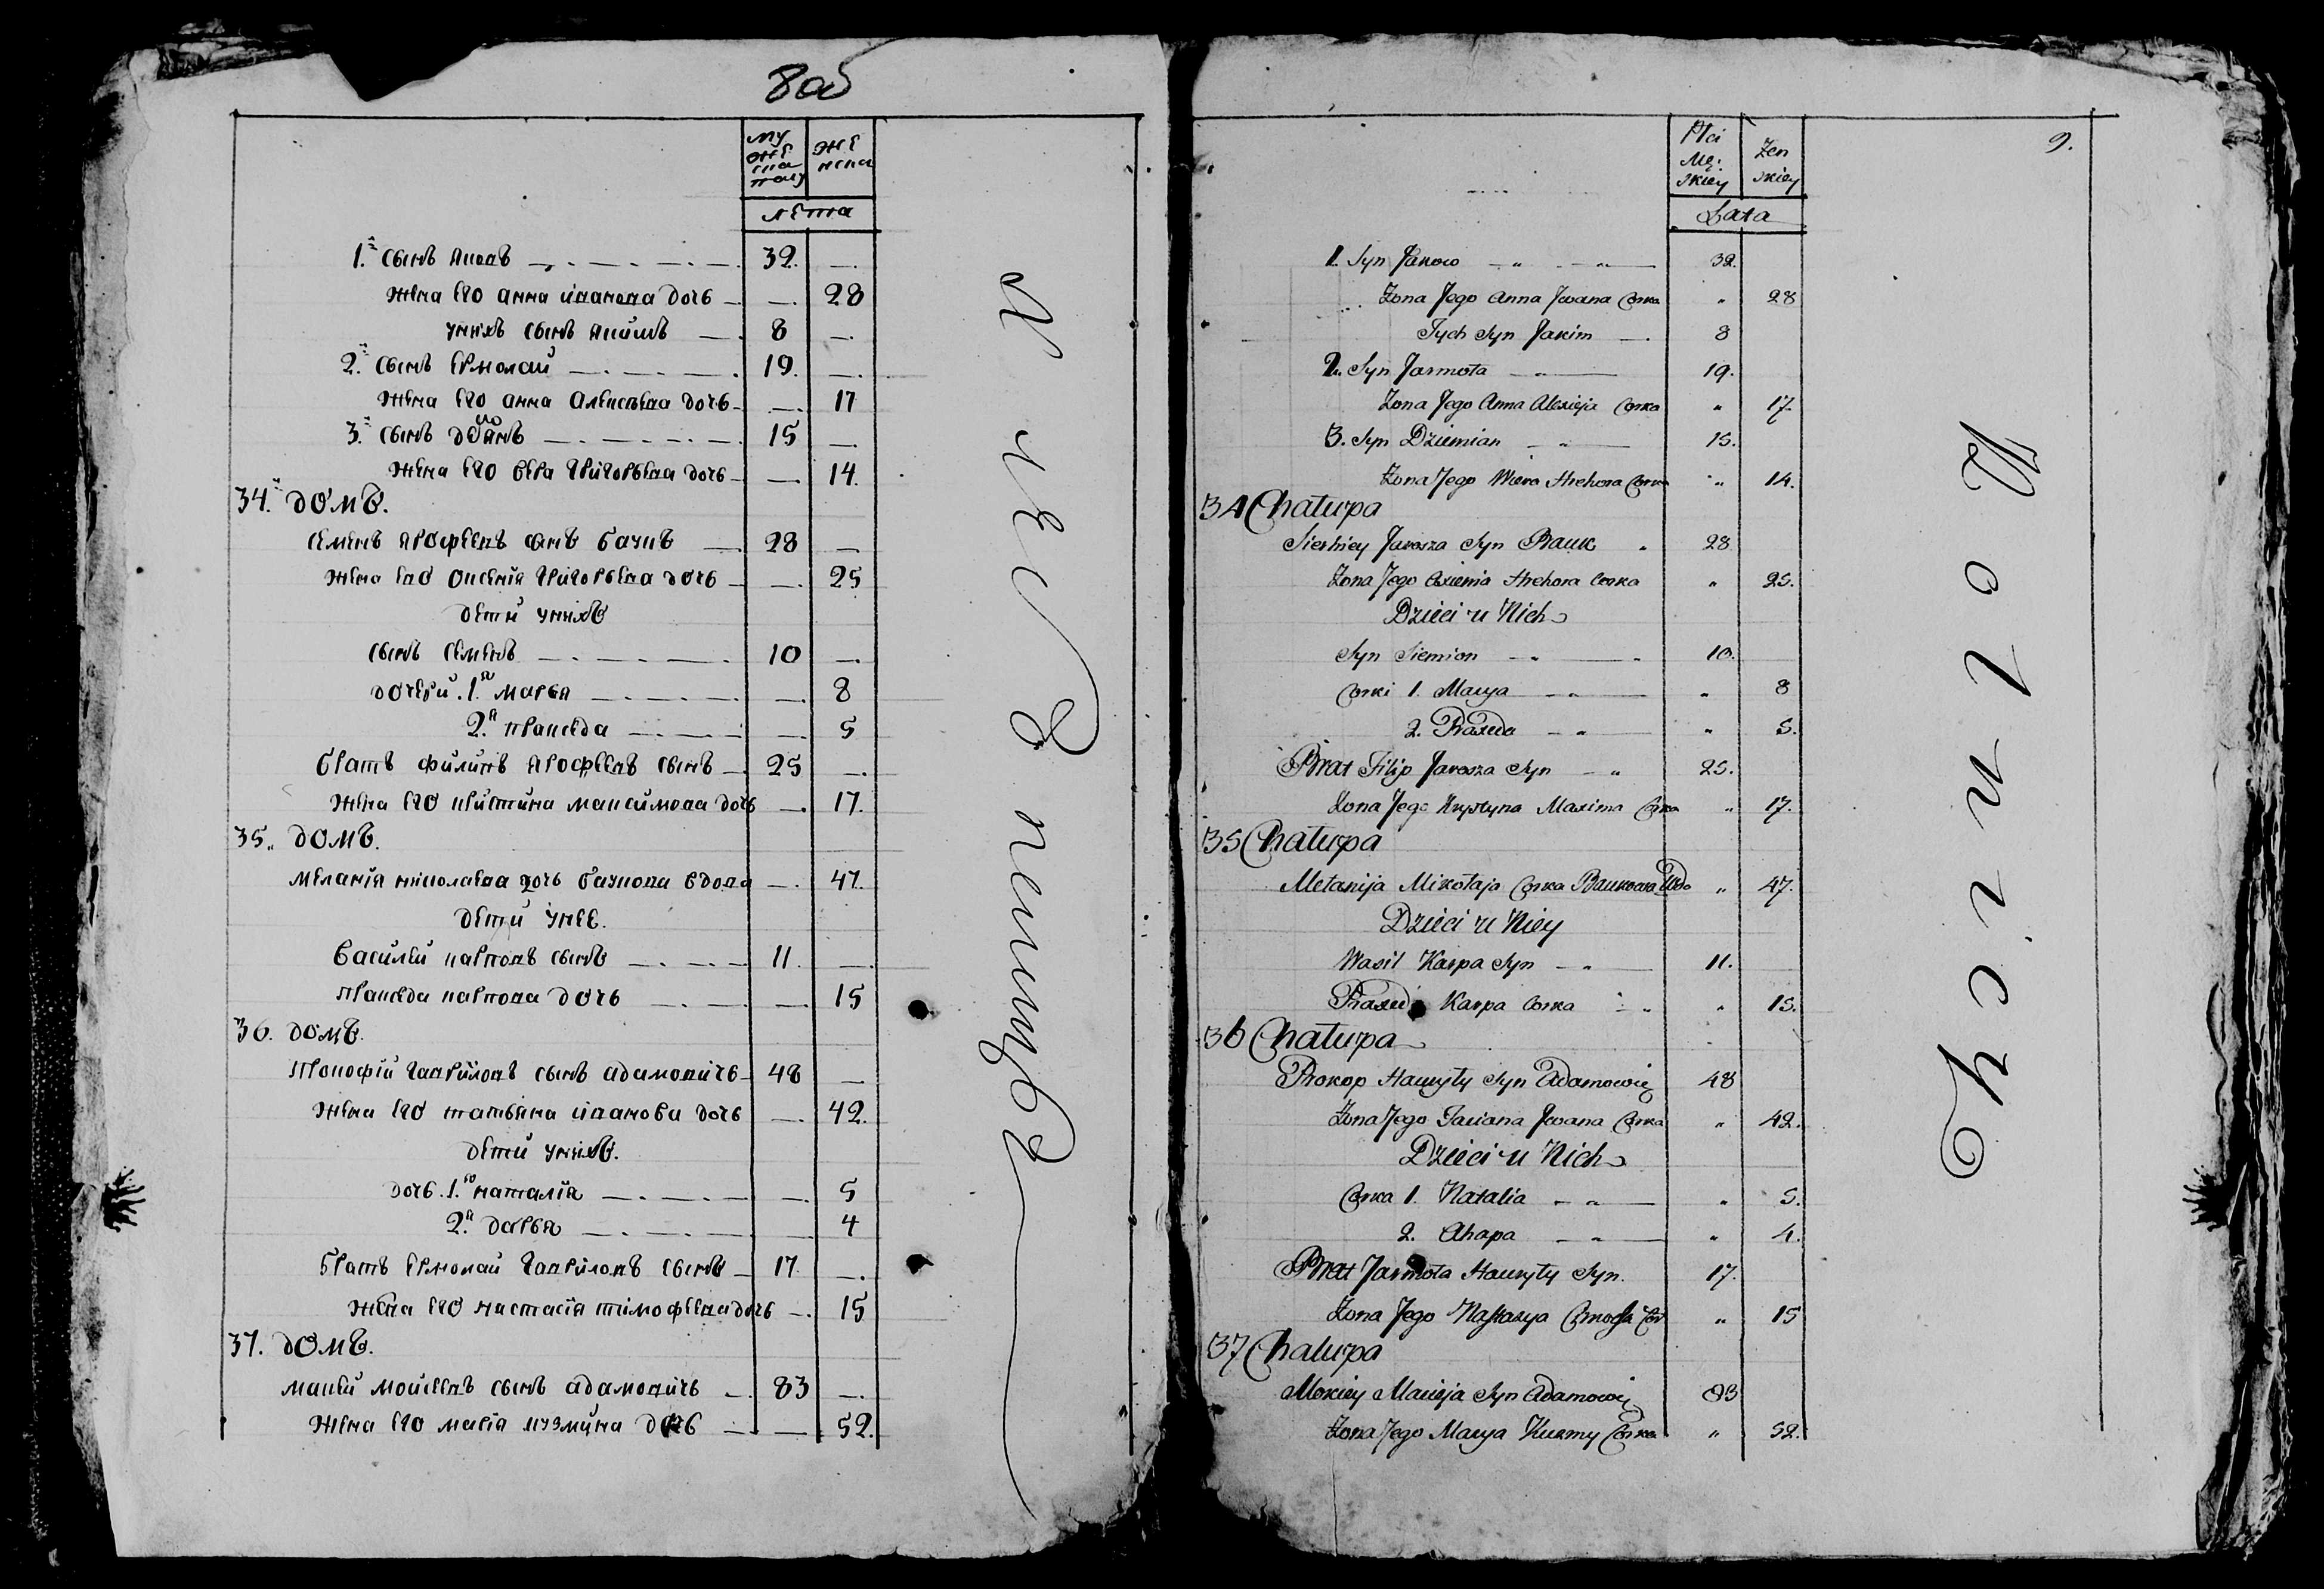 8 об
му
же
ска
полу
же
нска
лета
1.й сынъ яковъ 32.
жена его анна иванова дочь 28
у нихъ сынъ якимъ 8
2.й сынъ ермолай 19.
жена его анна алексеева дочь 17
3.й сынъ 15
жена его вера григорьева дочь 14.
34.й домъ.
ерофеевъ сынъ бачукъ 28
жена его ксения григорьева дочь 25
дети у нихъ
сынъ семенъ 10
дочери. 1.я марья 8
2.я пракседа 5
братъ филипъ ерофеевъ сынъ 25
жена его кристина максимова дочь 17.
35. домъ.
мелания николаева дочь вдова 47.
дети у нее.
василий карповъ сынъ 11.
пракседа карпова дочь 15
36. домъ.
прокофий гавриловъ сынъ адамовичъ 48
жена его татьяна иванова дочь 42.
дети у нихъ.
дочь. 1.я наталия 5
2.я дарья 4
братъ ермолай гавриловъ сынъ 17
жена его настасия тимофеева дочь 15
37. домъ.
мокей моисеевъ сынъ адамовичъ 83
жена его мария кузмина дочь 52.
9.
Płci
Mę.
skiey
Żen
skiey
Lata
1. Syn Jakow 32.
Żona Jego Anna Jwana Corka " 28
Tych Syn Jakim 8
2. Syn Jarmoła 19.
Żona Jego Anna Alexieja Corka " 17.
3. Syn Dziemian 15.
Żona Jego Wiera Hrehora Corka " 14.
34 Chałupa
Sierhiey Jarosza Syn 28
Żona Jego Axienia Hrehora Corka " 25.
Dzieci u Nich
Syn Siemion 10.
Corki 1. Marya " 8
2. Praxeda " 5.
Brat Filip Jarosza Syn 25.
Żona Jego Krystyna Maxima Corka " 17.
35 Chałupa
Mełanija Mikołaja Corka Wdo " 47.
Dzieci u Niey
Wasil Karpa Syn 11.
Praxed Karpa Corka " 15.
36 Chałupa
Prokop Hawryły Syn Adamowicz 48
Żona Jego Taciana Jwana Corka " 42.
Dzieci u Nich
Corka 1. Natalia " 5.
2. Ahapa " 4.
Brat Jarmoła Hawryły Syn. 17.
Żona Jego Nastasya Cor " 15
37 Chałupa
Mokiey Macieja Syn Adamowicz 83
Żona Jego Marya Kuzmy Corka " 52.
Wolnicy